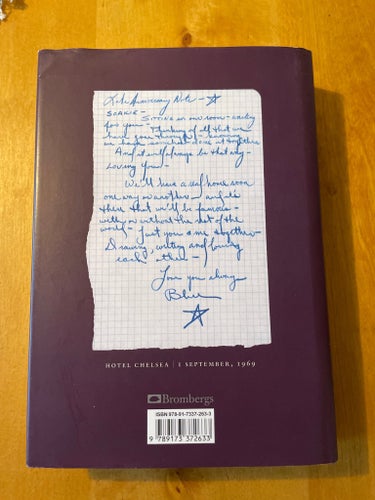 Late Anniversary Note -
SOAKIE -
Sitting in our room - waiting
for you - Thinking of all that we
have gone through - knowing
we have somehow done it together
And it will always be that way -
Loving You -
We'll have a real home soon
one way or another - and its
there that we'll be famous
with or without the rest of the
world - Just you & me together -
Drawing, writing and loving
each other -
Love you always
Blue
HOTEL CHELSEA | 1 SEPTEMBER, 1969
Brombergs
ISBN 978-91-7337-263-3
9 789173 372633